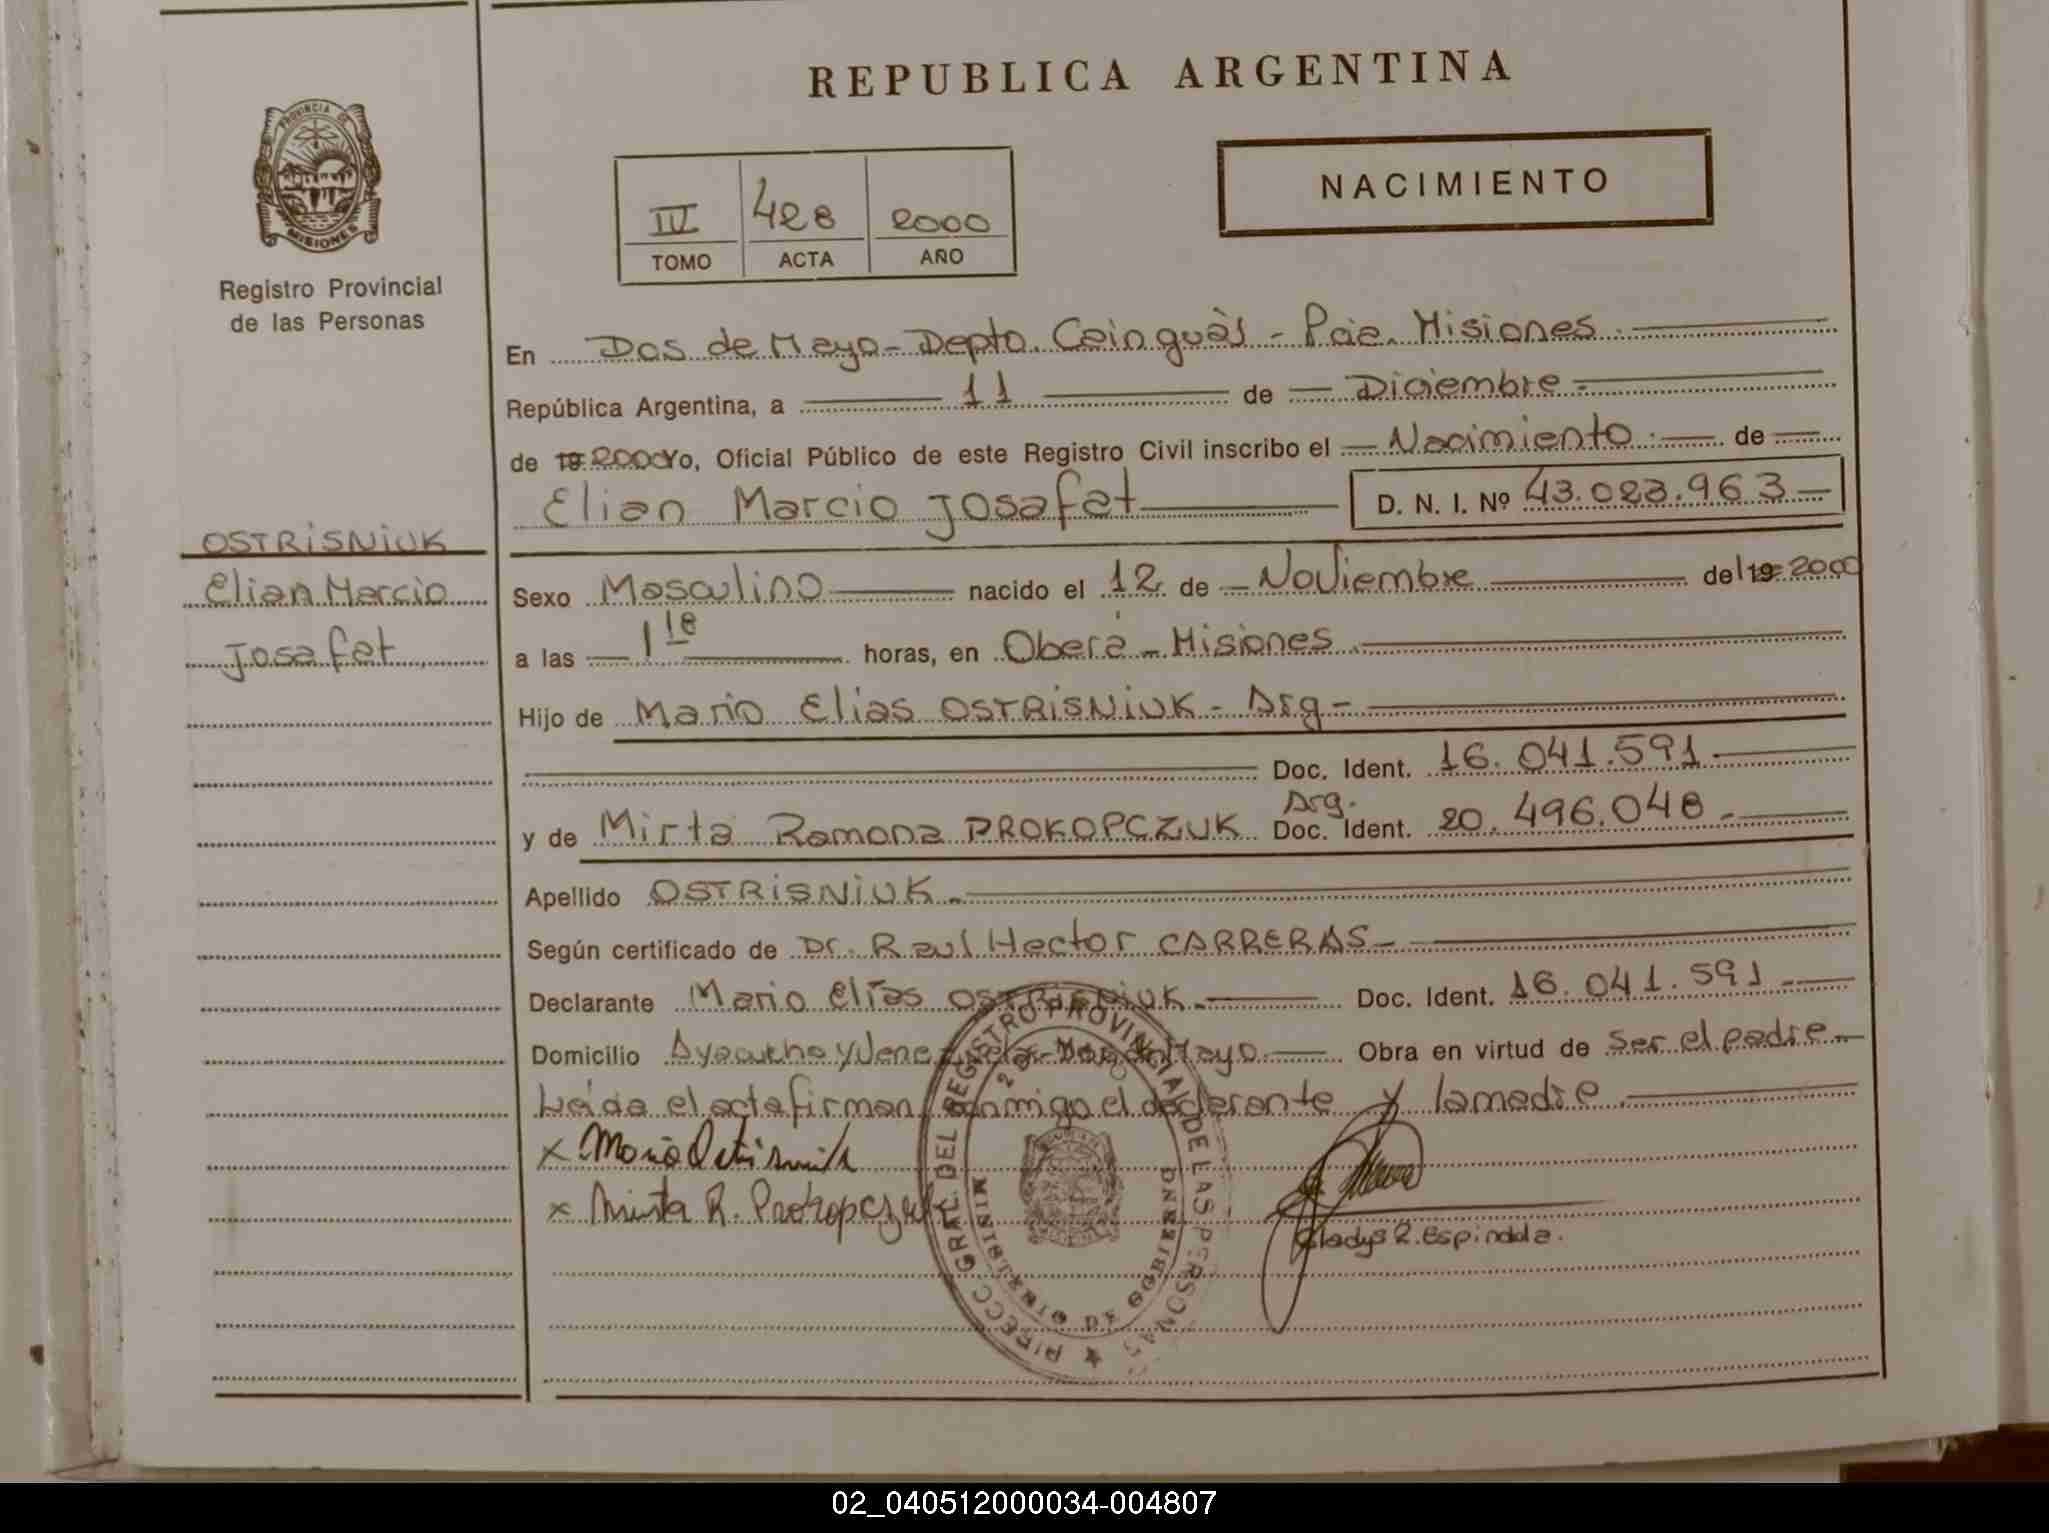 REPUBLICA ARGENTINA
PROVINCIA DE
MISIONES
Registro Provincial
de las Personas
NACIMIENTO
IV 428 2000
TOMO ACTA AÑO
En Dos de Mayo - Depto. Cainguàs - Pcia. Misiones.
República Argentina, a 11 de Diciembre.
de 19 2000 Yo, Oficial Público de este Registro Civil inscribo el Nacimiento. de
Elian Marcio Josafat D. N. I. Nº 43.023.963
OSTRISNIUK
Elian Marcio
Josafat
Sexo Masculino nacido el 12 de Noviembre de 19 2000
a las 1 horas, en Oberá - Misiones.
Hijo de Mario Elias OSTRISNIUK - Arg -
Doc. Ident. 16.041.591
y de Mirta Ramona PROKOPCZUK Arg. Doc. Ident. 20.496.048 -
Apellido OSTRISNIUK -
Según certificado de Dr. Raul Hector CARRERAS -
Declarante Mario Elías OSTRISNIUK - Doc. Ident. 16.041.591 -
Domicilio Ayacucho y Venezuela - Dos de Mayo. Obra en virtud de ser el padre -
Leída el acta firman conmigo el declarante y la madre
x Mario Ostrisniuk
x Mirta R. Prokopczuk
Gladys R. Espindola.
DIRECC GRAL. DEL REGISTRO PROVINCIAL DE LAS PERSONAS
MINISTERIO DE GOBIERNO
02_040512000034-004807